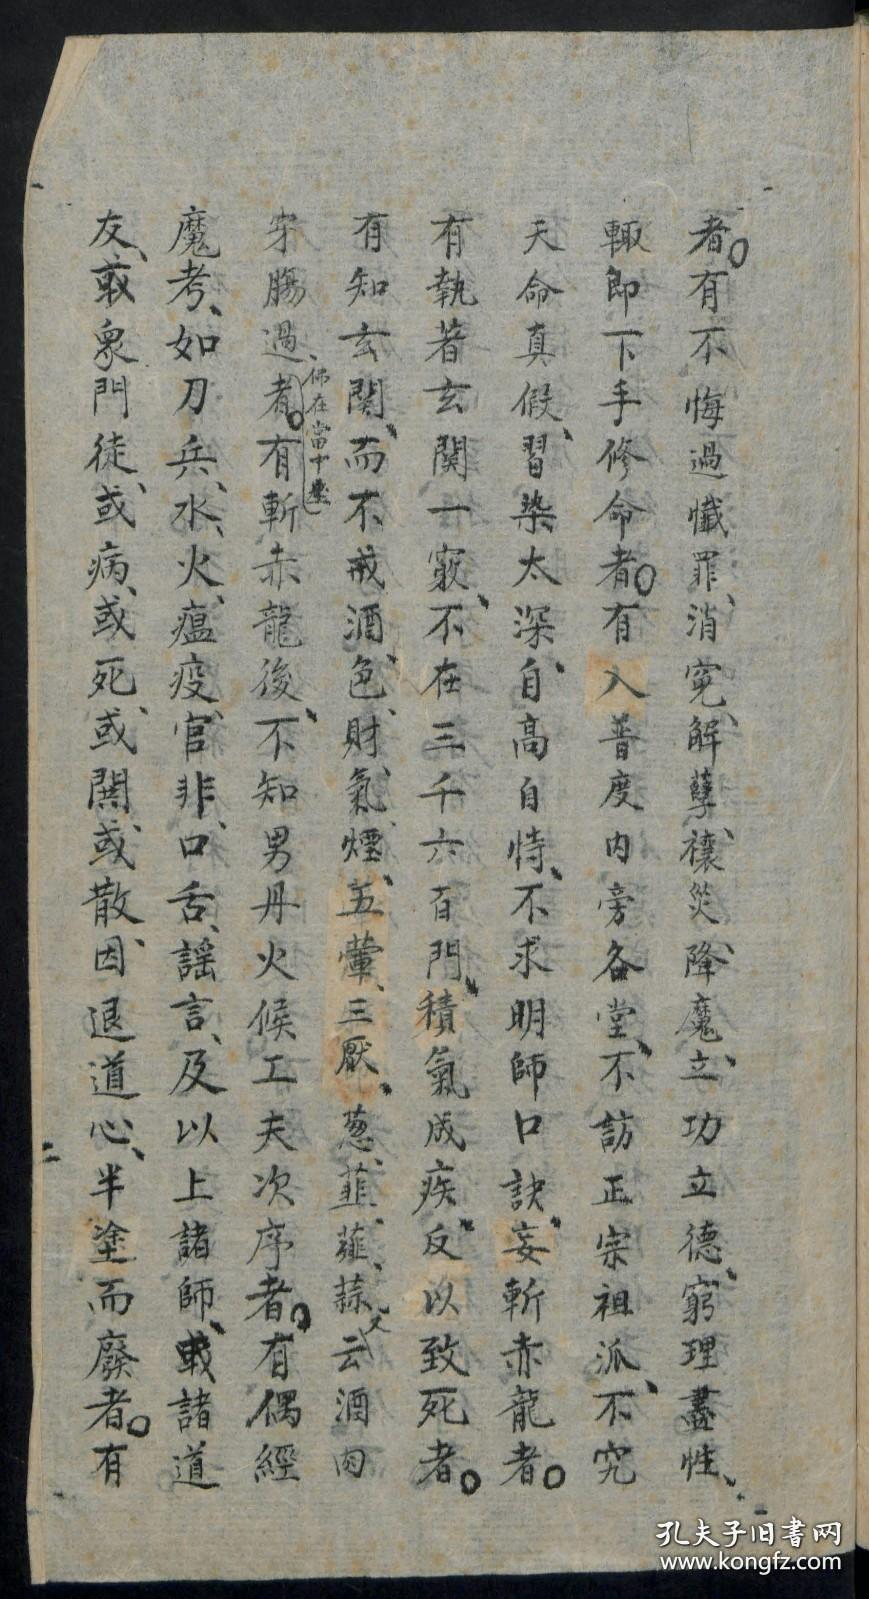 者。有不悔過懺罪、消冤、解孽、禳災、降魔、立功立德、窮理盡性、
輒即下手修命者。有入普度內旁各堂、不訪正宗祖派、不究
天命真假、習染太深、自高自恃、不求明師口訣、妄斬赤龍者。
有執著玄關一竅、不在三千六百門、積氣成疾、反以致死者。
有知玄關、而不戒酒、色、財、氣、煙、五葷、三厭、葱、韮、薤、蒜、又云酒肉
穿腸過、(佛在當中坐)者。有斬赤龍後、不知男丹火候工夫次序者。有偶經
魔考、如刀兵、水、火、瘟疫、官非、口舌、謠言、及以上諸師、或諸道
友、或衆門徒、或病、或死、或関、或散、因退道心、半塗而廢者。有
孔夫子旧書网
www.kongfz.com